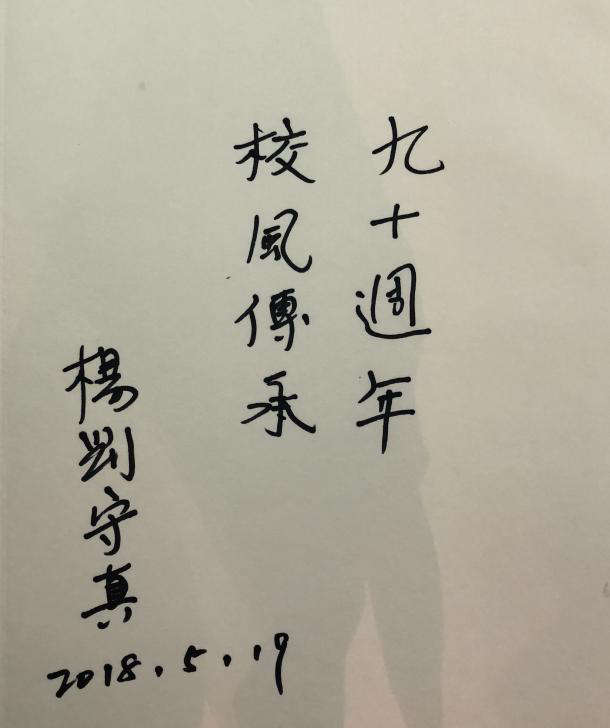 九十週年
校風傳承
楊劉守真
2018.5.19